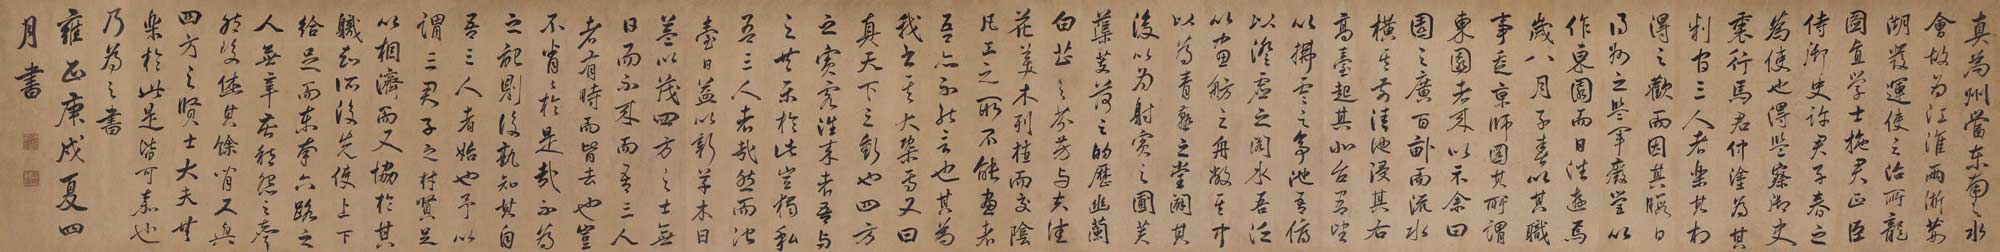 真為州當東南之水
會故为江淮兩浙荊
湖發運使之治所龍
圖直学士施君正臣
侍御史許君子春之
為使也得監察御史
裏行馬君仲塗為其
判官三人者樂其相
得之歡而因其暇日
得州之監軍廢營以
作東園而日往遊焉
歲八月子春以其職
事走京師圖其所謂
東園者来以示余曰
園之廣百畝而流水
橫其前清池浸其右
高臺起其北台吾望
以拂雲之亭池吾俯
以澄虛之閣水吾泛
以畫舫之舟敞其中
以為青讌之堂闢其
後以為射賓之圃芙
蕖芰荷之的歷幽蘭
白芷之芬芳与夫佳
花美木列植而交陰
凡工之所不能畫者
吾亦不能言也其為
我書其大槩焉又曰
真天下之衝也四方
之賓客往来者吾与
之共樂於此豈獨私
吾三人者哉然而池
臺日益以新草木日
益以茂四方之士無
日而不来而吾三人
者有時而皆去也豈
不眷眷於是哉不為
之記則後孰知其自
吾三人者始也予以
謂三君子之材賢足
以相濟而又協於其
職知所後先使上下
給足而東南六路之
人無辛苦愁怨之聲
然後休其餘閒又與
四方之賢士大夫共
樂於此是皆可嘉也
乃為之書
雍正庚戌夏四
月書